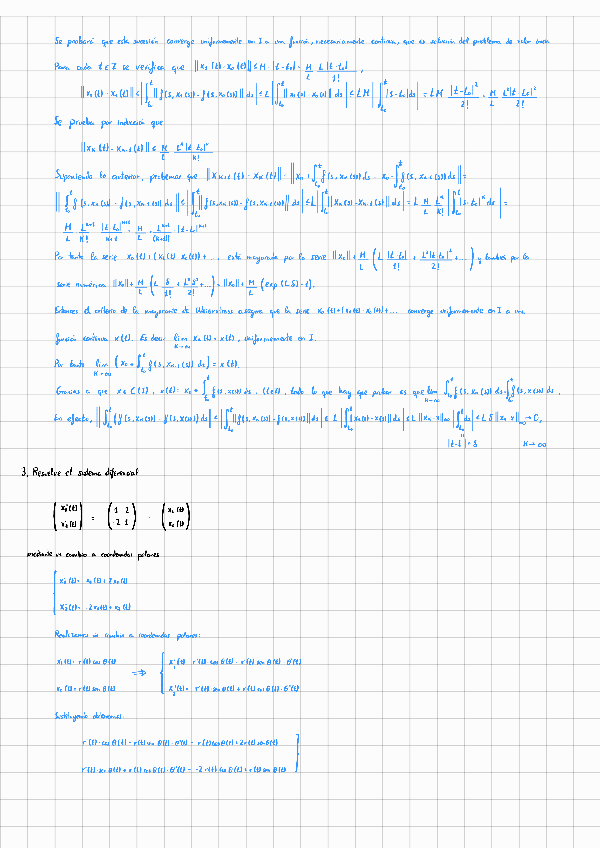 Se probará que esta sucesión converge uniformemente en I a una función, necesariamente continua, que es solución del problema de valor inicial
Para cada t ∈ I se verifica que ‖x₁(t) - x₀(t)‖ ≤ M |t - t₀| = M/L · L|t - t₀|/1! ,
‖x₂(t) - x₁(t)‖ ≤ |∫_{t₀}^t ‖f(s, x₁(s)) - f(s, x₀(s))‖ ds| ≤ L |∫_{t₀}^t ‖x₁(s) - x₀(s)‖ ds| ≤ LM |∫_{t₀}^t |s - t₀| ds| = LM |t - t₀|²/2! = M/L · L²|t - t₀|²/2!
Se prueba por inducción que
‖x_K(t) - x_{K-1}(t)‖ ≤ M/L · L^K |t - t₀|^K / K!
Suponiendo lo anterior, probemos que ‖x_{K+1}(t) - x_K(t)‖ = ‖x₀ + ∫_{t₀}^t f(s, x_K(s)) ds - x₀ - ∫_{t₀}^t f(s, x_{K-1}(s)) ds‖ =
‖∫_{t₀}^t f(s, x_K(s)) - f(s, x_{K-1}(s)) ds‖ ≤ |∫_{t₀}^t ‖f(s, x_K(s)) - f(s, x_{K-1}(s))‖ ds| ≤ L |∫_{t₀}^t ‖x_K(s) - x_{K-1}(s)‖ ds| = L M/L L^K/K! |∫_{t₀}^t |s - t₀|^K ds| =
M/L L^{K+1}/K! |t - t₀|^{K+1}/K+1 = M/L · L^{K+1}/(K+1)! |t - t₀|^{K+1}
Por tanto la serie x₀(t) + (x₁(t) - x₀(t)) + ... está mayorada por la serie ‖x₀‖ + M/L (L|t - t₀|/1! + L²|t - t₀|²/2! + ...) y también por la
serie numérica ‖x₀‖ + M/L (L δ/1! + L²δ²/2! + ...) = ‖x₀‖ + M/L (exp(Lδ) - 1).
Entonces el criterio de la mayorante de Weierstrass asegura que la serie x₀(t) + (x₁(t) - x₀(t)) + ... converge uniformemente en I a una
función continua x(t). Es decir lim_{K→∞} x_K(t) = x(t), uniformemente en I.
Por tanto lim_{K→∞} (x₀ + ∫_{t₀}^t f(s, x_{K-1}(s)) ds) = x(t).
Gracias a que x ∈ C(I), x(t) = x₀ + ∫_{t₀}^t f(s, x(s)) ds, (t ∈ I), todo lo que hay que probar es que lim_{K→∞} ∫_{t₀}^t f(s, x_K(s)) ds = ∫_{t₀}^t f(s, x(s)) ds.
En efecto, ‖∫_{t₀}^t (f(s, x_K(s)) - f(s, x(s))) ds‖ ≤ |∫_{t₀}^t ‖f(s, x_K(s)) - f(s, x(s))‖ ds| ≤ L |∫_{t₀}^t ‖x_K(s) - x(s)‖ ds| ≤ L ‖x_K - x‖_∞ |∫_{t₀}^t ds| ≤ L δ ‖x_K - x‖_∞ → 0,
|t - t₀| ≤ δ K → ∞
3. Resuelve el sistema diferencial
(x₁'(t) x₂'(t)) = (1 2 -2 1) · (x₁(t) x₂(t))
mediante un cambio a coordenadas polares
x₁'(t) = x₁(t) + 2x₂(t)
x₂'(t) = -2x₁(t) + x₂(t)
Realizamos un cambio a coordenadas polares:
x₁(t) = r(t) cos θ(t) ⇒ x₁'(t) = r'(t) cos θ(t) - r(t) sen θ(t) · θ'(t)
x₂(t) = r(t) sen θ(t) x₂'(t) = r'(t) sen θ(t) + r(t) cos θ(t) · θ'(t)
Sustituyendo obtenemos:
r'(t) · cos θ(t) - r(t) sen θ(t) · θ'(t) = r(t) cos θ(t) + 2r(t) sen θ(t)
r'(t) · sen θ(t) + r(t) cos θ(t) · θ'(t) = -2 r(t) cos θ(t) + r(t) sen θ(t)